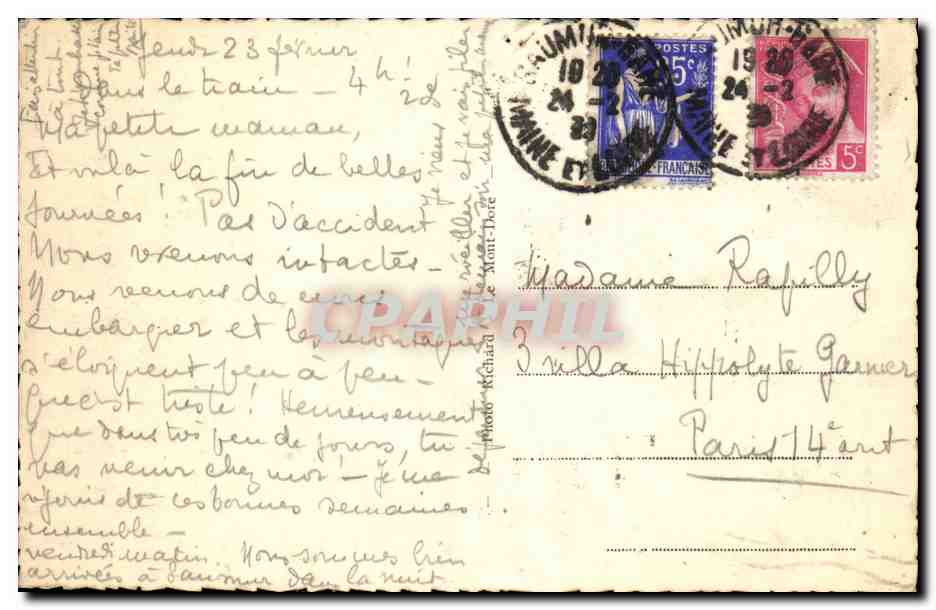 Jeudi 23 février
Dans le train - 4h ½ de
Ma petite maman,
Et voilà la fin de belles
journées ! Pas d'accident
Nous revenons intactes -
Nous venons de nous
embarquer et les montagnes
s'éloignent peu à peu -
Que c'est triste ! Heureusement
que dans très peu de jours, tu
vas venir chez moi ! - Je me
réjouis de ces bonnes semaines
ensemble -
vendredi matin. Nous sommes bien
arrivées à Saumur dans la nuit
Photo Richard Le Mont-Dore
SAUMUR-GARE
19 20
24 -2
39
MAINE ET LOIRE
POSTES
65c
FRANÇAISE
SAUMUR-GARE
19 20
24 -2
39
MAINE ET LOIRE
POSTES
5c
CPAPHIL
Madame Rapilly
3 villa Hippolyte Garnier
Paris 14e arrt